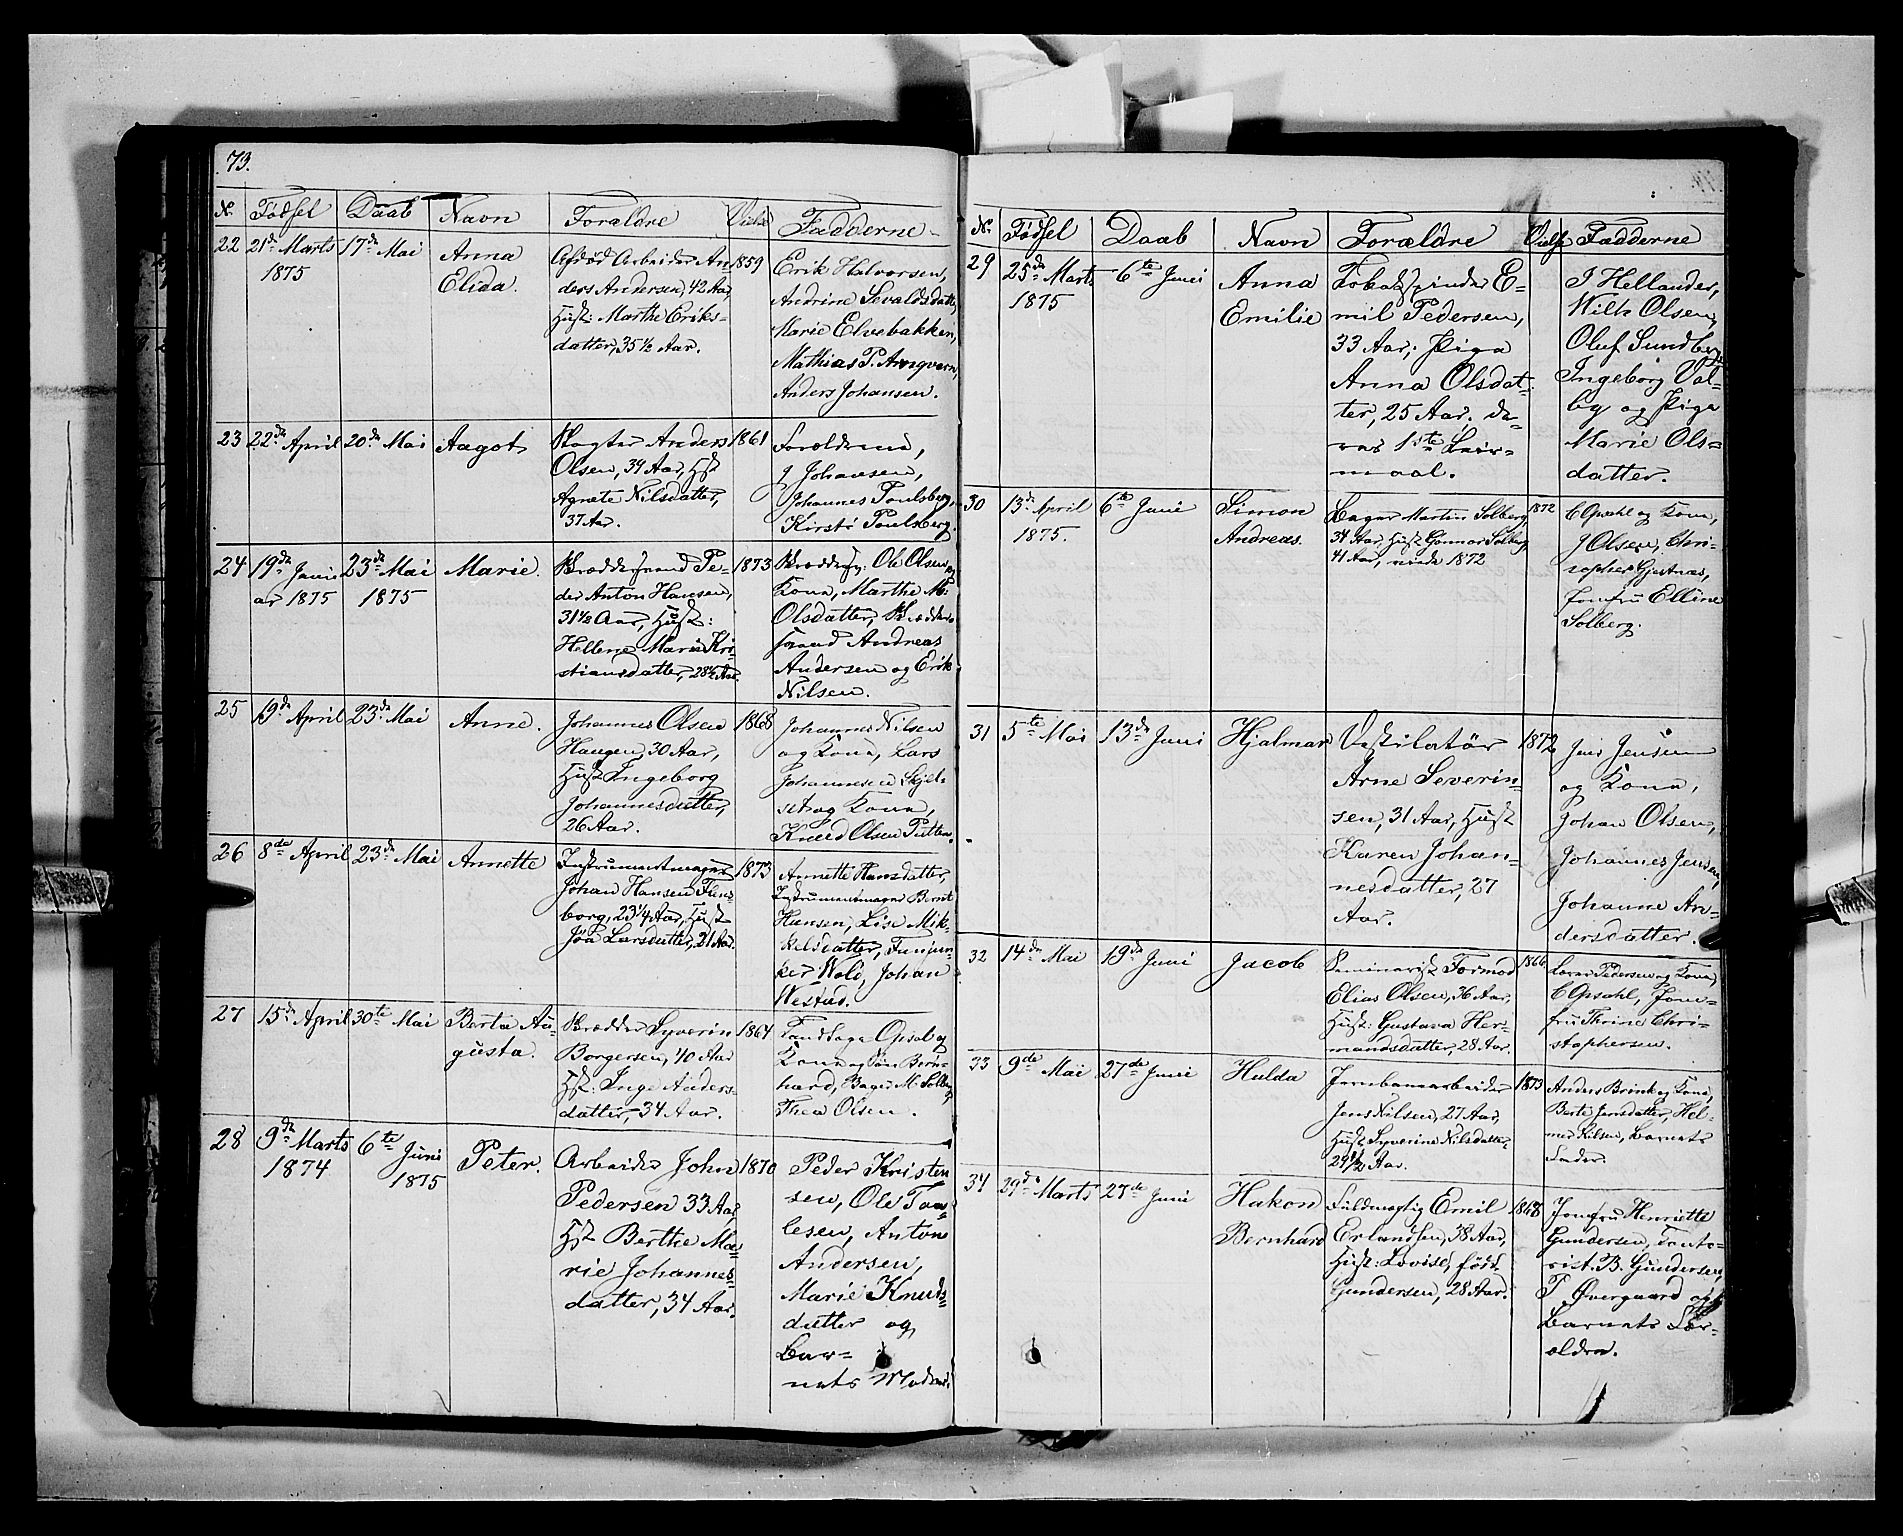 73.
N. Fødsel Daab Navn Forældre Vielse Fadderne
22 21de Marts 1875 17de Mai Anna Elida.
Afdød Arbeider An-
ders Andersen, 42 Aar,
Hust: Marthe Eriks-
datter, 35½ Aar.
1859
Erik Halvorsen,
Andrine Sevaldsdatt,
Marie Elvebakken,
Mathias P.
Anders Johansen.
23 22de April 20de Mai Aagot
Slagter Anders
Olsen, 39 Aar, Hst
Agnete Nilsdatter,
37 Aar.
1861
Forældrene,
J Johansen,
Johannes Poulsberg,
Kirsti Poulsberg.
24 19de Janu-
ar 1875 23de Mai
1875 Marie.
Bræddesmand Pe-
der Anton Hansen,
31½ Aar, Hust:
Hellene Marie Kri-
stiansdatter, 28½ Aar.
1873
Ole Olsen og
Kone, Marthe M.
Olsdatter,
Andreas
Andersen og Erik
Nilsen.
25 19de April 23de Mai Anne.
Johannes Olsen
Haugen 30 Aar,
Hust Ingeborg
Johannesdatter,
26 Aar.
1868
Johannes Nilsen
og Kone, Lars
Johannsen Skjel-
set og Kone,
Knud Olsen Putten.
26 8de April 23de Mai Annette
Instrumentmager
Johan Hansen Flens-
borg, 23¼ Aar, Hust
Larsdatter, 21 Aar.
1873
Annette Hansdatter,
Instrumentmager Bernt
Hansen, Lise Mik-
kelsdatter, Funjun-
ker Wold, Johan
Westad.
27 15de April 30te Mai Berta Au-
gusta.
Brædder Syverin
Borgersen, 40 Aar
Hst: Inge Anders-
datter, 34 Aar.
1864
Opsal og
Kone og Søn Bern-
hard, Bager M. Solberg,
Thea Olsen.
28 9de Marts
1874 6te Juni
1875 Peter.
Arbeider John
Pedersen 33 Aar,
Hst Berthe Ma-
rie Johannes-
datter, 34 Aar.
1870
Peder Kristen
sen, Ole Tom-
lesen, Anton
Andersen,
Marie Knuds-
datter og
Bar-
nets Moder.
N. Fødsel Daab Navn Forældre Vielse Fadderne
29 25de Marts
1875 6te Juni Anna
Emilie
Tobakspinder E-
mil Pedersen,
33 Aar; Pige
Anna Olsdat-
ter, 25 Aar. de-
res 1ste Leier-
maal.
J Hellander,
Wilh Olsen,
Oluf Sundberg
Ingeborg Val-
by og Pige
Marie Ols-
datter.
30 13de April
1875. 6te Juni Simon
Andreas.
Bager Martin Solberg
34 Aar, Hust Gunnar Solberg,
41 Aar, viede 1872
1872
C Opsahl og Kone,
J Olsen, Chri-
stopher Gjestnæs,
Jomfru Elline
Solberg.
31 5te Mai 13de Juni Hjalmar
Arne Severin-
sen, 31 Aar, Hust
Karen Johan-
nesdatter, 27
Aar.
1872
Jens Jensen
og Kone,
Johan Olsen,
Johannes Jensen,
Johanne An-
dersdatter.
32 14de Mai 19de Juni Jacob
Seminarist Tormod
Elias Olsen, 36 Aar,
Hust: Gustava Her-
mandsdatter, 28 Aar.
1866
Lærer Pedersen og Kone,
C Opsahl, Jom-
fru Thrine Chri-
stophersen.
33 9de Mai 27de Juni Hulda
Jernbanearbeider
Jens Nilsen, 27 Aar,
Hust Syverine Nilsdatter
29½ Aar.
1873
Anders Brink og Kone,
Berte Jensdatter, Hel-
mer Nilsen, Barnets
Fader.
34 29de Marts 27de Juni Hakon
Bernhard
Fuldmægtig Emil
Erlandsen, 38 Aar,
Hust: Lovise, født
Gundersen, 28 Aar.
1868
Jomfru Henriette
Gundersen, Konto-
rist. B. Gundersen,
P Øvergaard og
Barnets For-
ældre.